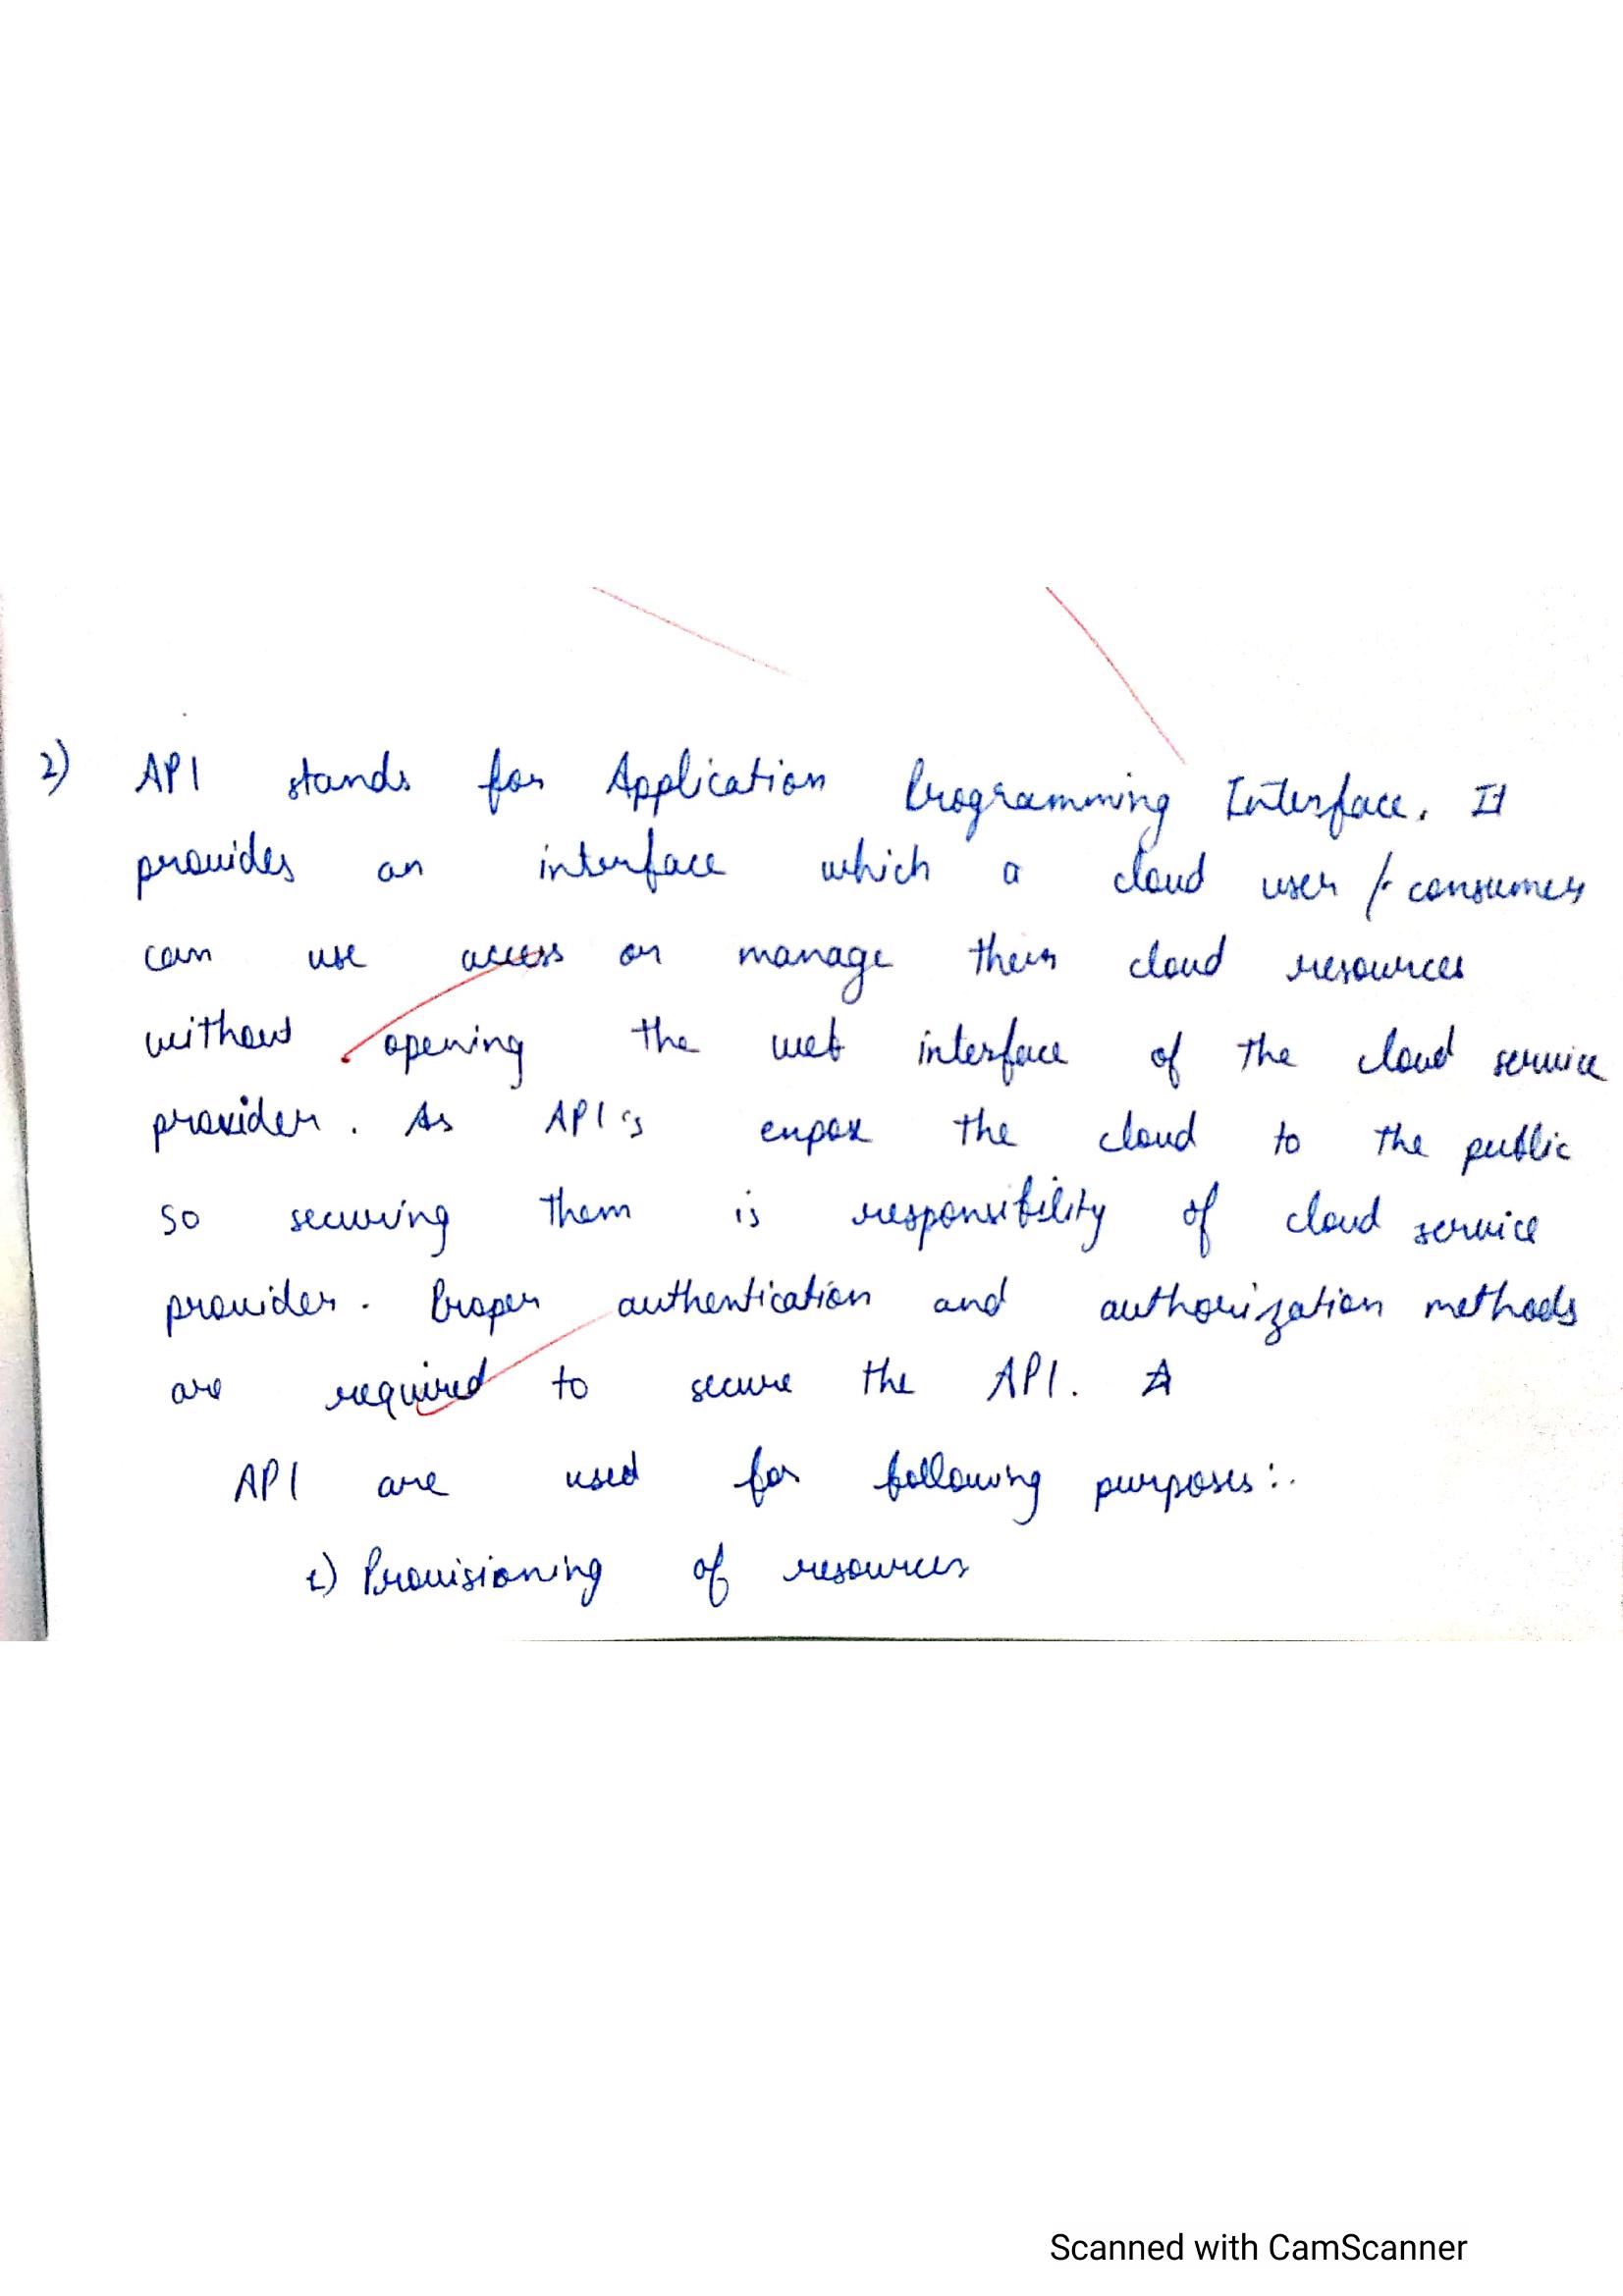 2) API stands for Application Programming Interface. It
provides an interface which a cloud user / consumer
can use access or manage their cloud resources
without opening the web interface of the cloud service
provider. As API's expose the cloud to the public
so securing them is responsibility of cloud service
provider. Proper authentication and authorization methods
are required to secure the API.
API are used for following purposes:.
i) Provisioning of resources
Scanned with CamScanner